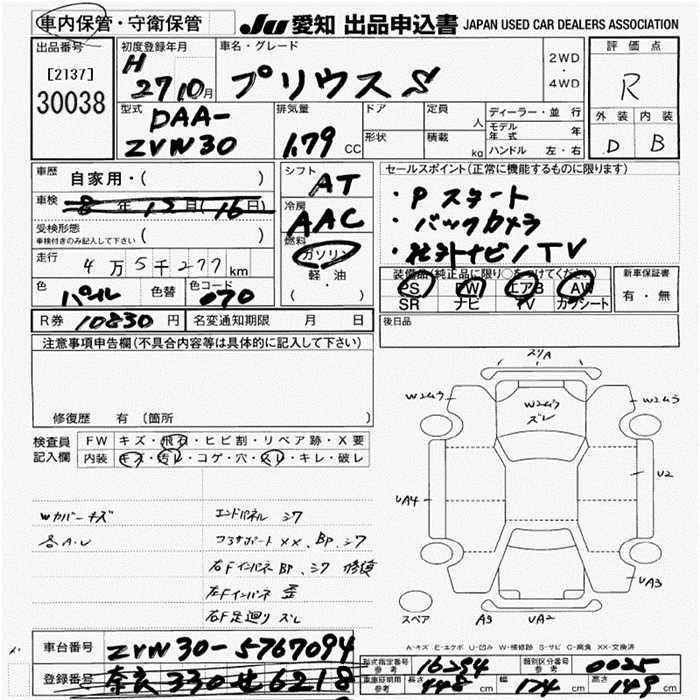 車内保管・守衛保管 JU 愛知 出品申込書 JAPAN USED CAR DEALERS ASSOCIATION
出品番号 初度登録年月 車名・グレード 2WD・4WD 評価点
[2137] H
30038 27 10月 プリウス S R
型式 排気量 ドア 定員 人 ディーラー・並行 外装 内装
DAA- 形状 積載 kg モデル年式 年 D B
ZVW30 1.79 CC ハンドル 左・右
車歴 自家用・( ) シフト AT セールスポイント(正常に機能するものに限ります)
車検 8年12月(16日) 冷房 AAC ・Pスタート
受検形態 ( ) ・バックカメラ
車検付きのみ記入して下さい 燃料 ガソリン ・社外ナビ/TV
走行 4万5千277km 軽・油 装備品(純正品に限り○をつけてください) 新車保証書
色 パール 色替 色コード 070 ( ・ ) PS PW エアB AW 有・無
SR ナビ TV カワシート
R券 10830円 名変通知期限 月 日 後日品
注意事項申告欄(不具合内容等は具体的に記入して下さい)
修復歴 有 (箇所 )
検査員 FW キズ・飛石・ヒビ割・リペア跡・X要
記入欄 内装 キズ・汚レ・コゲ・穴・スレ・キレ・破レ
Wカバーキズ エンドパネル シワ
各A・U コアサポート XX、Bp、シワ
右FインパネBp、シワ 修績
左Fインパネ 歪
右F足廻り ズレ
スリA
W2ムラ W2ムラ W2ムラ
ズレ
UA4 U2
UA3
スペア A3 UA2
A-キズ E-エクボ U-凹み W-補修跡 S-サビ C-腐食 XX-交換済
車台番号 ZVW30-5767094 型式指定番号 参考 16294 類別区分番号 参考 0025
登録番号 奈良 330 せ 6218 車庫証明用 参考 長さ 448 cm 幅 174 cm 高さ 149 cm